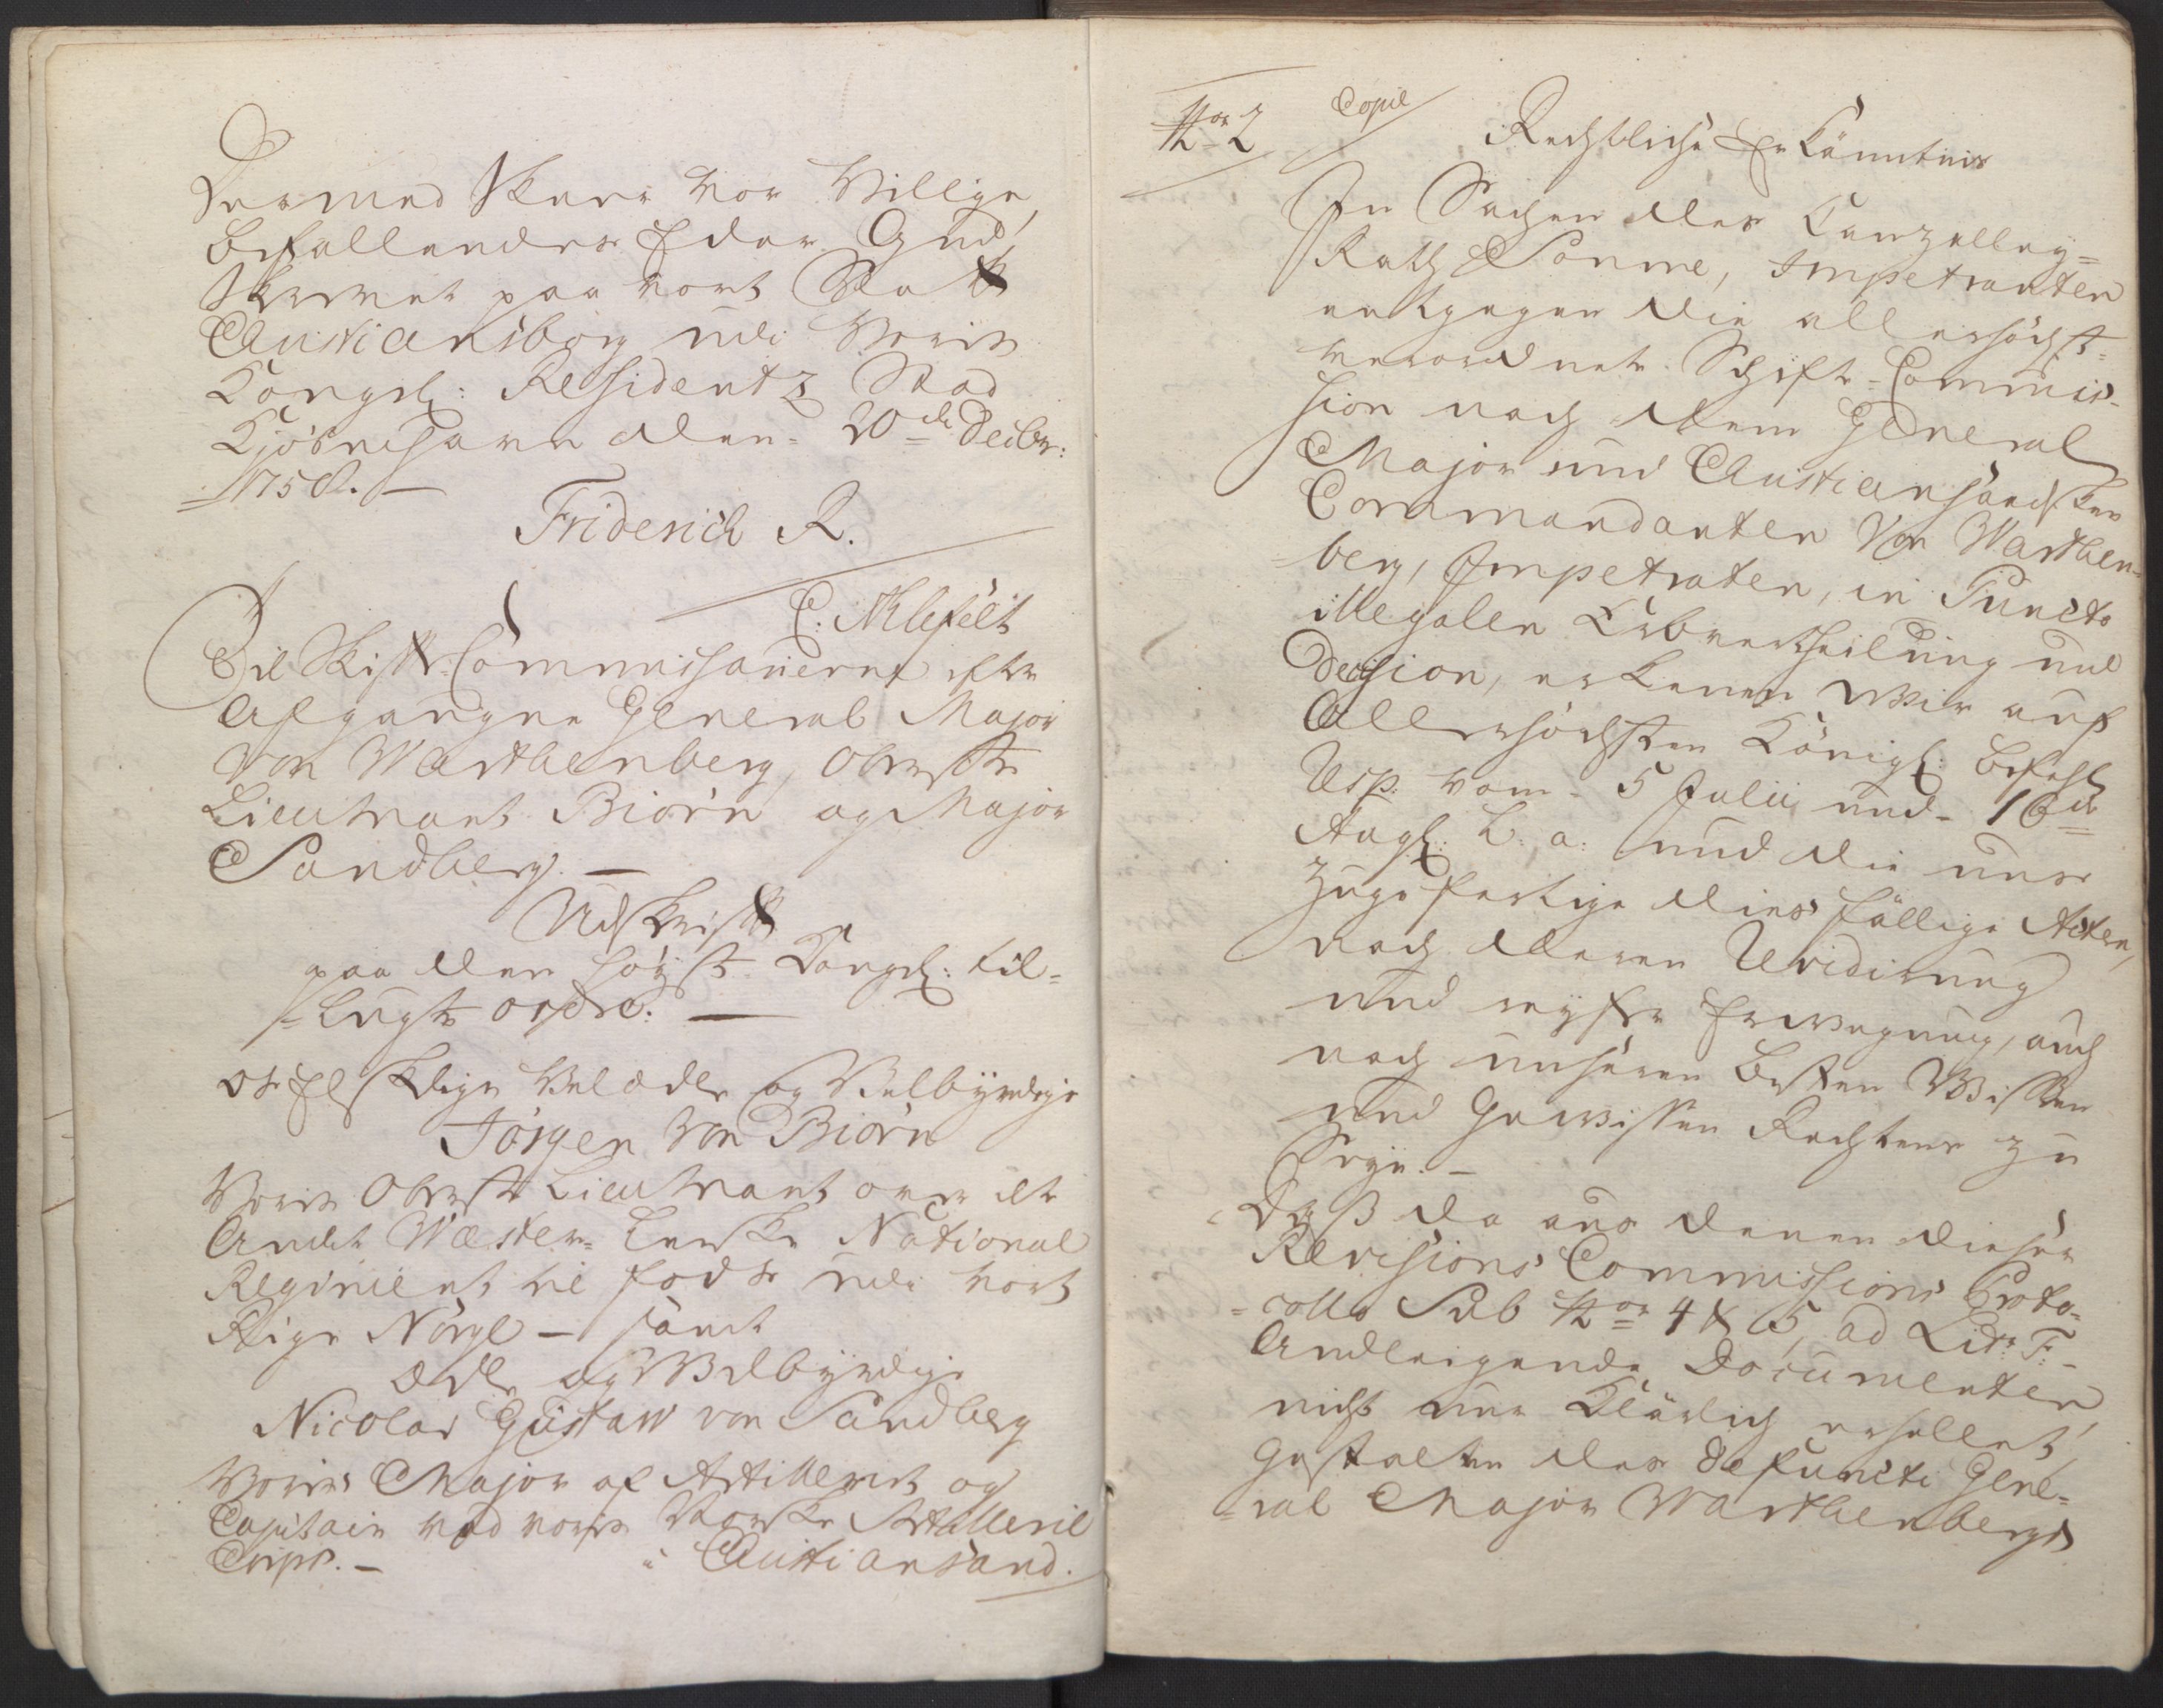 Dermed Skeer vor Villige,
befallendes Eder Gud,
Skrevet paa vort Slott
Christiansborg udi Vores
Kongel: Residentz Stad
Kjöbenhavn den 20de Decbr:
1758. —
Friderich R.
C: Ahlefelt
Til Skifte-Commissairerne efter
Afgangne General Major
von Warthenberg, Oberste
Lieutnant Biörn og Major
Sandberg. —
Udskrift
paa den höyst Kongel: til-
lagte ordre: —
Os Elskelige Velædle og Velbyrdige
Jörgen von Biörn
Vores Oberst Lieutnant over det
Andet Wester-Lenske National
Regiment til fods udi vort
Rige Norge — samt
Ædle og Velbyrdige
Nicolai Gustaw von Sandberg
Vores Major af Artilleriet og
Capitain ved vores Norske Artillerie
Corps. — " Christiansand.
No 2 Copie
Rechtliche Erkänntnis
In Sachen des Canzelley-
Rath Sonne, Impetranten
entgegen die allerhöchst-
verordnete Schifte-Commis-
sion nach dem General
Major und Christiansandschen
Commandanten von Warthen-
berg, Impetraten, in Puncto
illegalen Erbvertheilung und
Decision, erkennen Wir auf
Allerhöchsten Königl: Befehl
Resp: vom 5 Julii und 16de
Aug: h: a: und die uns
zugefertige dies fällige Acten,
nach deren Revidirung
und reyfer Erwegung, auch
nach unseren besten Wissen
und Gewissen Rechtens zu
Seyn. —
Daß da aus denen dieser
Revisions Commissions Proto-
collo Sub No 4 & 5, ad Litr: F:
Andleigende Documenten,
nicht nur klärlich erhellet,
Gestalten des defuncti Gene-
ral Major Warthenbergs